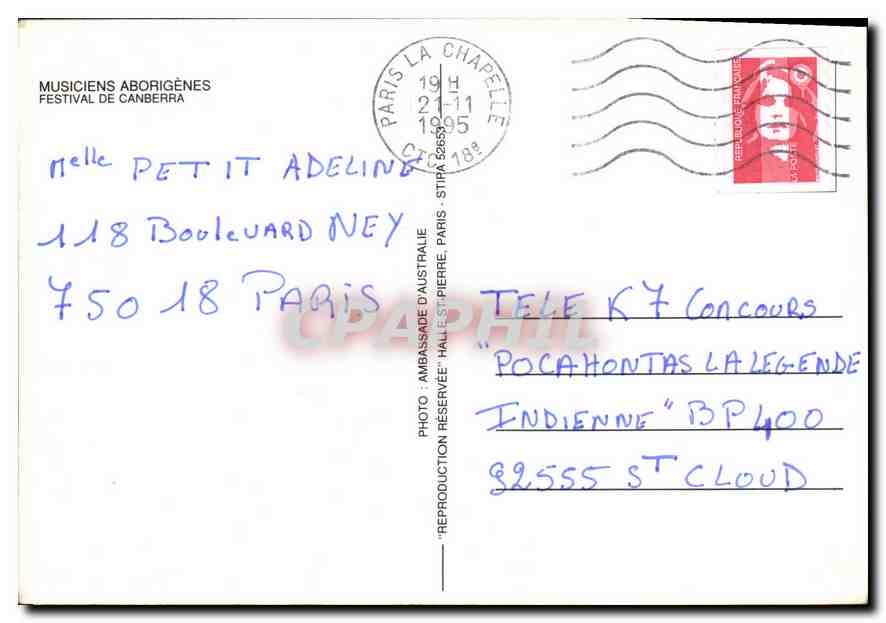 MUSICIENS ABORIGÈNES
FESTIVAL DE CANBERRA
PARIS LA CHAPELLE
19 H
21-11
1995
CTC 18e
RÉPUBLIQUE FRANÇAISE
LA POSTE
Melle PETIT ADELINE
118 BOULEVARD NEY
75018 PARIS
PHOTO : AMBASSADE D'AUSTRALIE
"REPRODUCTION RÉSERVÉE" HALLE ST-PIERRE, PARIS - STIPA 52653
TELE K7 CONCOURS
"POCAHONTAS LA LEGENDE
INDIENNE" BP 400
92555 ST CLOUD
CPAPHIL